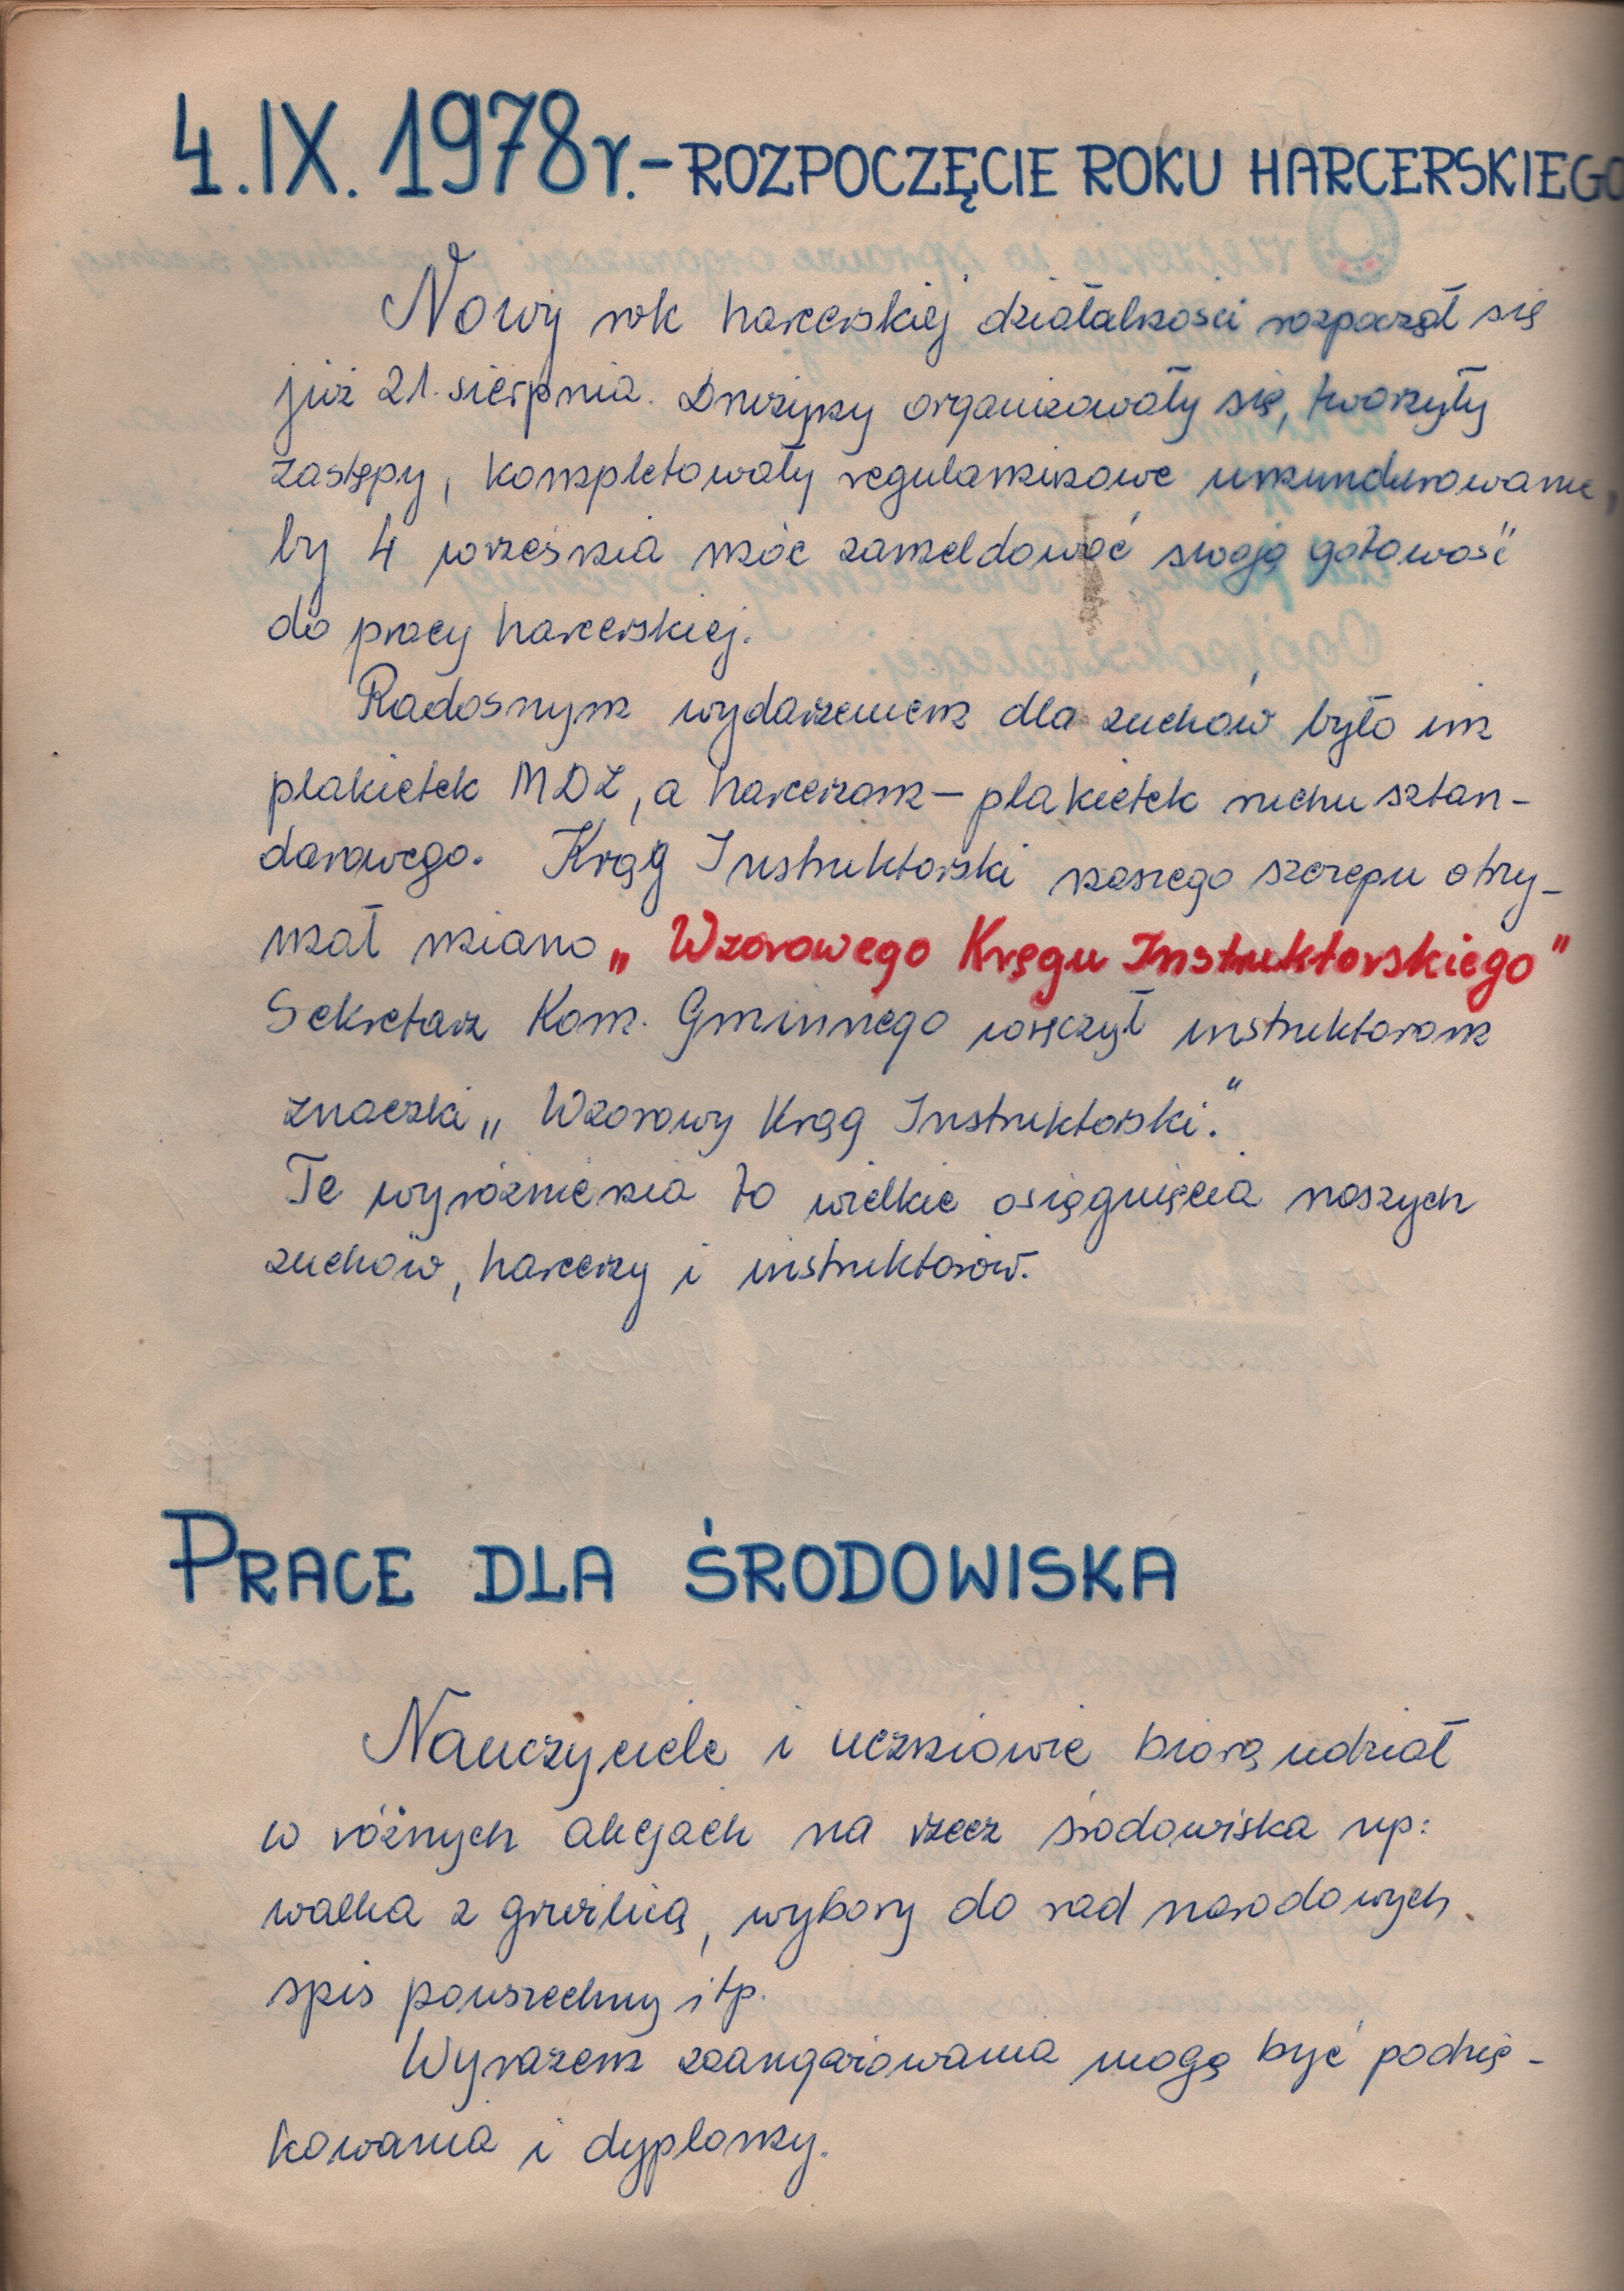 4. IX. 1978 r. - ROZPOCZĘCIE ROKU HARCERSKIEGO
Nowy rok harcerskiej działalności rozpoczął się
już 21. sierpnia. Drużyny organizowały się, tworzyły
zastępy, kompletowały regulaminowe umundurowanie,
by 4 września móc zameldować swoją gotowość
do pracy harcerskiej.
Radosnym wydarzeniem dla zuchów było im
plakietek MDZ, a harcerzom - plakietek ruchu sztan-
darowego. Krąg Instruktorski naszego szczepu otrzy-
mał miano „Wzorowego Kręgu Instruktorskiego"
Sekretarz Kom. Gminnego wręczył instruktorom
znaczki „Wzorowy Krąg Instruktorski."
Te wyróżnienia to wielkie osiągnięcia naszych
zuchów, harcerzy i instruktorów.
PRACE DLA ŚRODOWISKA
Nauczyciele i uczniowie biorą udział
w różnych akcjach na rzecz środowiska np:
walka z gruźlicą, wybory do rad narodowych.
spis powszechny itp.
Wyrazem zaangażowania mogą być podzię-
kowania i dyplomy.